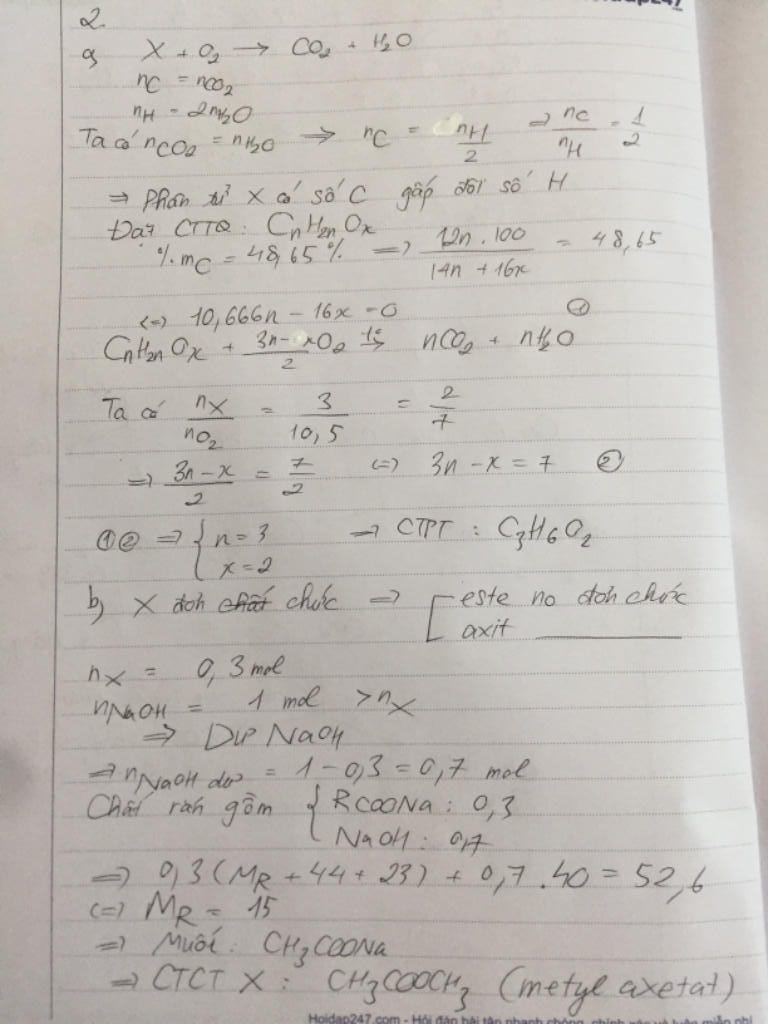 2.
a, X + O₂ → CO₂ + H₂O
nC = nCO₂
nH = 2nH₂O
Ta có nCO₂ = nH₂O ⇒ nC = nH/2 ⇒ nC/nH = 1/2
⇒ Phân tử X có số C gấp đôi số H
Đặt CTTQ: CnH2nOx
%mC = 48,65% ⇒ 12n.100/(14n + 16x) = 48,65
(=) 10,666n - 16x = 0 ①
CnH2nOx + (3n-x)/2 O₂ t° → nCO₂ + nH₂O
Ta có nX/nO₂ = 3/10,5 = 2/7
⇒ (3n-x)/2 = 7/2 (=) 3n - x = 7 ②
①② ⇒ { n = 3 → CTPT : C₃H₆O₂
x = 2
b, X đơn chất chức ⇒ [ este no đơn chức
axit ________
nX = 0,3 mol
nNaOH = 1 mol > nX
⇒ Dư NaOH
⇒ nNaOH dư = 1 - 0,3 = 0,7 mol
Chất rắn gồm { RCOONa : 0,3
NaOH : 0,7
⇒ 0,3(MR + 44 + 23) + 0,7.40 = 52,6
(=) MR = 15
⇒ Muối : CH₃COONa
⇒ CTCT X : CH₃COOCH₃ (metyl axetat)
Hoidap247.com - Hỏi đáp bài tập nhanh chóng, chính xác và luôn miễn phí